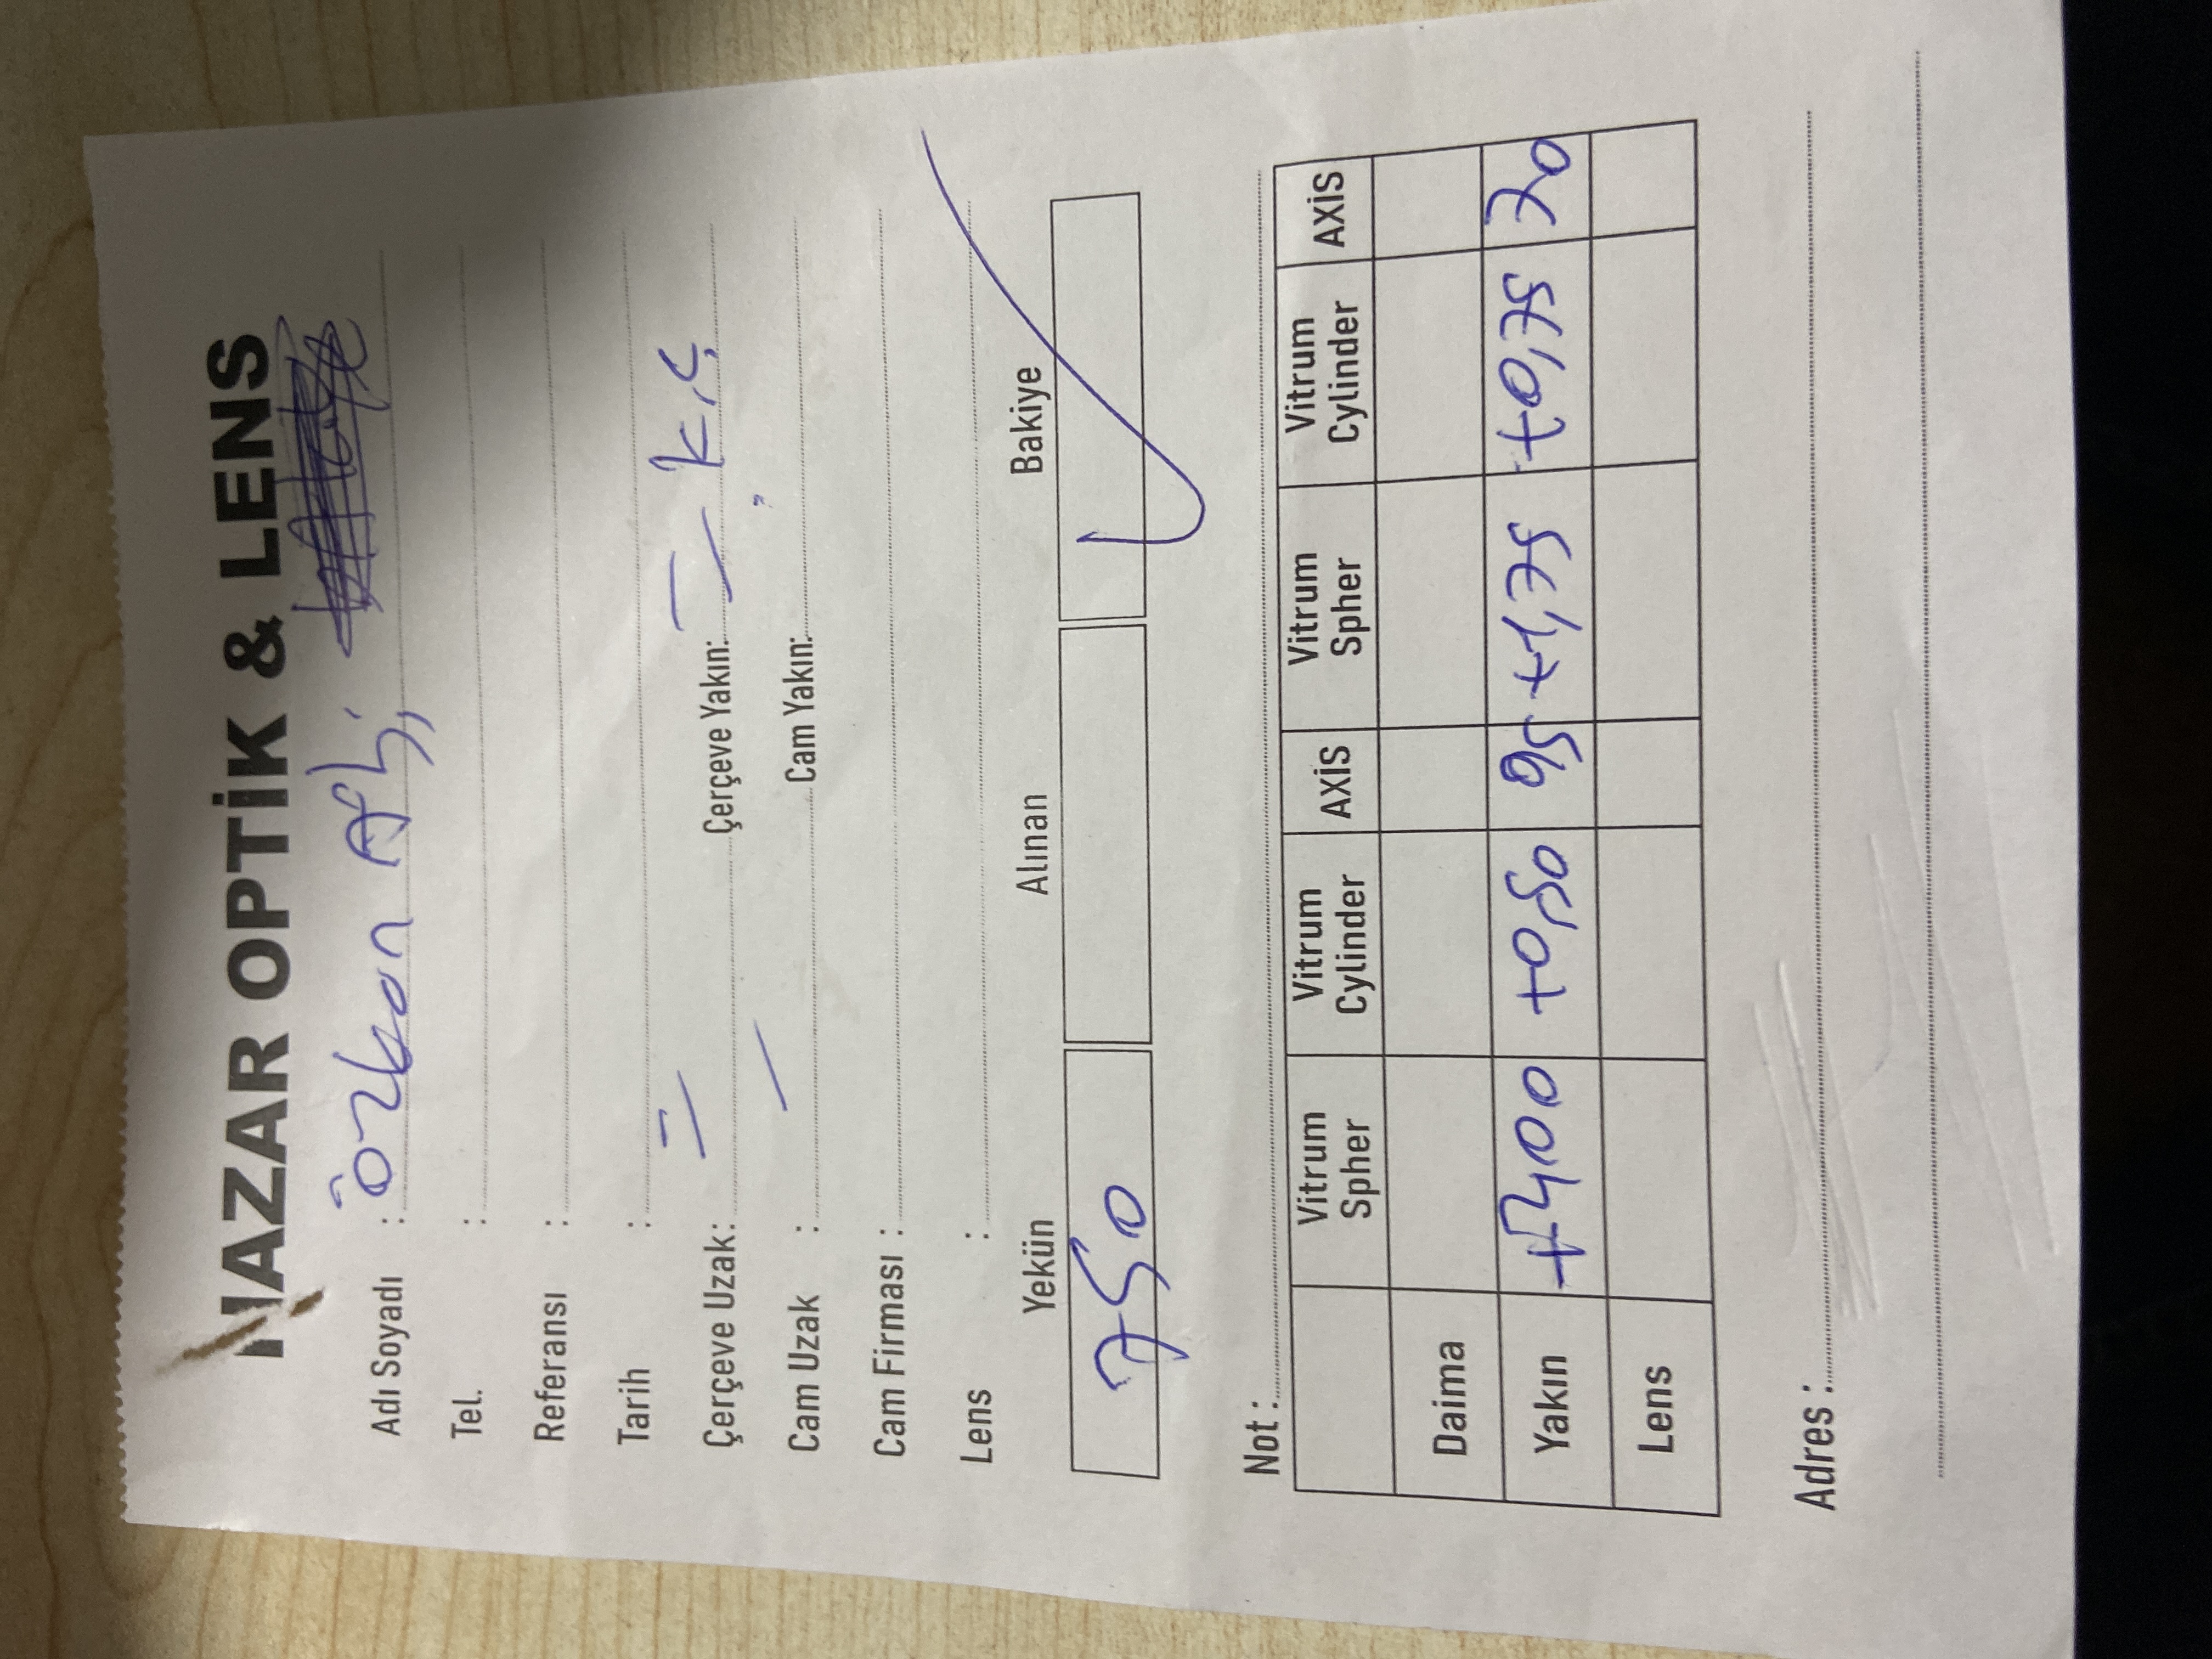 NAZAR OPTİK & LENS
Adı Soyadı : Özkan Abi
Tel. :
Referansı :
Tarih :
Çerçeve Uzak: = Çerçeve Yakın: = K.Ç
Cam Uzak : Cam Yakın:
Cam Firması :
Lens :
Yekün Alınan Bakiye
750
Not :
Vitrum Spher Vitrum Cylinder AXİS Vitrum Spher Vitrum Cylinder AXİS
Daima
Yakın +0,50 95 +1,75 +0,75 70
Lens
Adres :